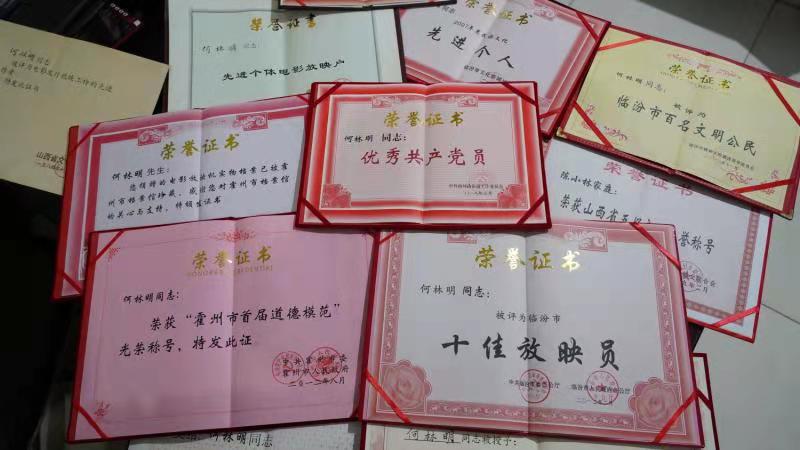 何林明同志
山西省文
荣誉证书
何林明同志:
先进个体电影放映户
荣誉证书
先进个人
荣誉证书
何林明同志:
被评为
临汾市百名文明公民
荣誉证书
何林明先生:
您捐赠的电影放映机实物档案已被霍
州市档案馆珍藏,感谢您对霍州市档案馆
的关心与支持,特颁发证书
荣誉证书
何林明同志:
优秀共产党员
荣誉证书
陈小林家庭:
荣获山西省五
誉称号
荣誉证书
何林明同志:
荣获“霍州市首届道德模范”
光荣称号,特发此证
中共霍州市委
霍州市人民政府
二〇一二年八月
荣誉证书
何林明同志:
被评为临汾市
十佳放映员
何林明同志
何林明同志被授予: